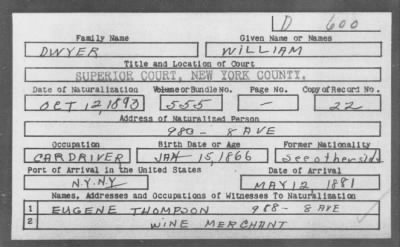 D 600
Family Name Given Name or Names
DWYER WILLIAM
Title and Location of Court
SUPERIOR COURT, NEW YORK COUNTY.
Date of Naturalization Volume or Bundle No. Page No. Copy of Record No.
OCT 12, 1893 555 - 22
Address of Naturalized Person
980 - 8 AVE
Occupation Birth Date or Age Former Nationality
CAR DRIVER JAN 15, 1866 See other side
Port of Arrival in the United States Date of Arrival
N.Y. N.Y MAY 12, 1881
Names, Addresses and Occupations of Witnesses To Naturalization
1 EUGENE THOMPSON 988 - 8 AVE
2 WINE MERCHANT